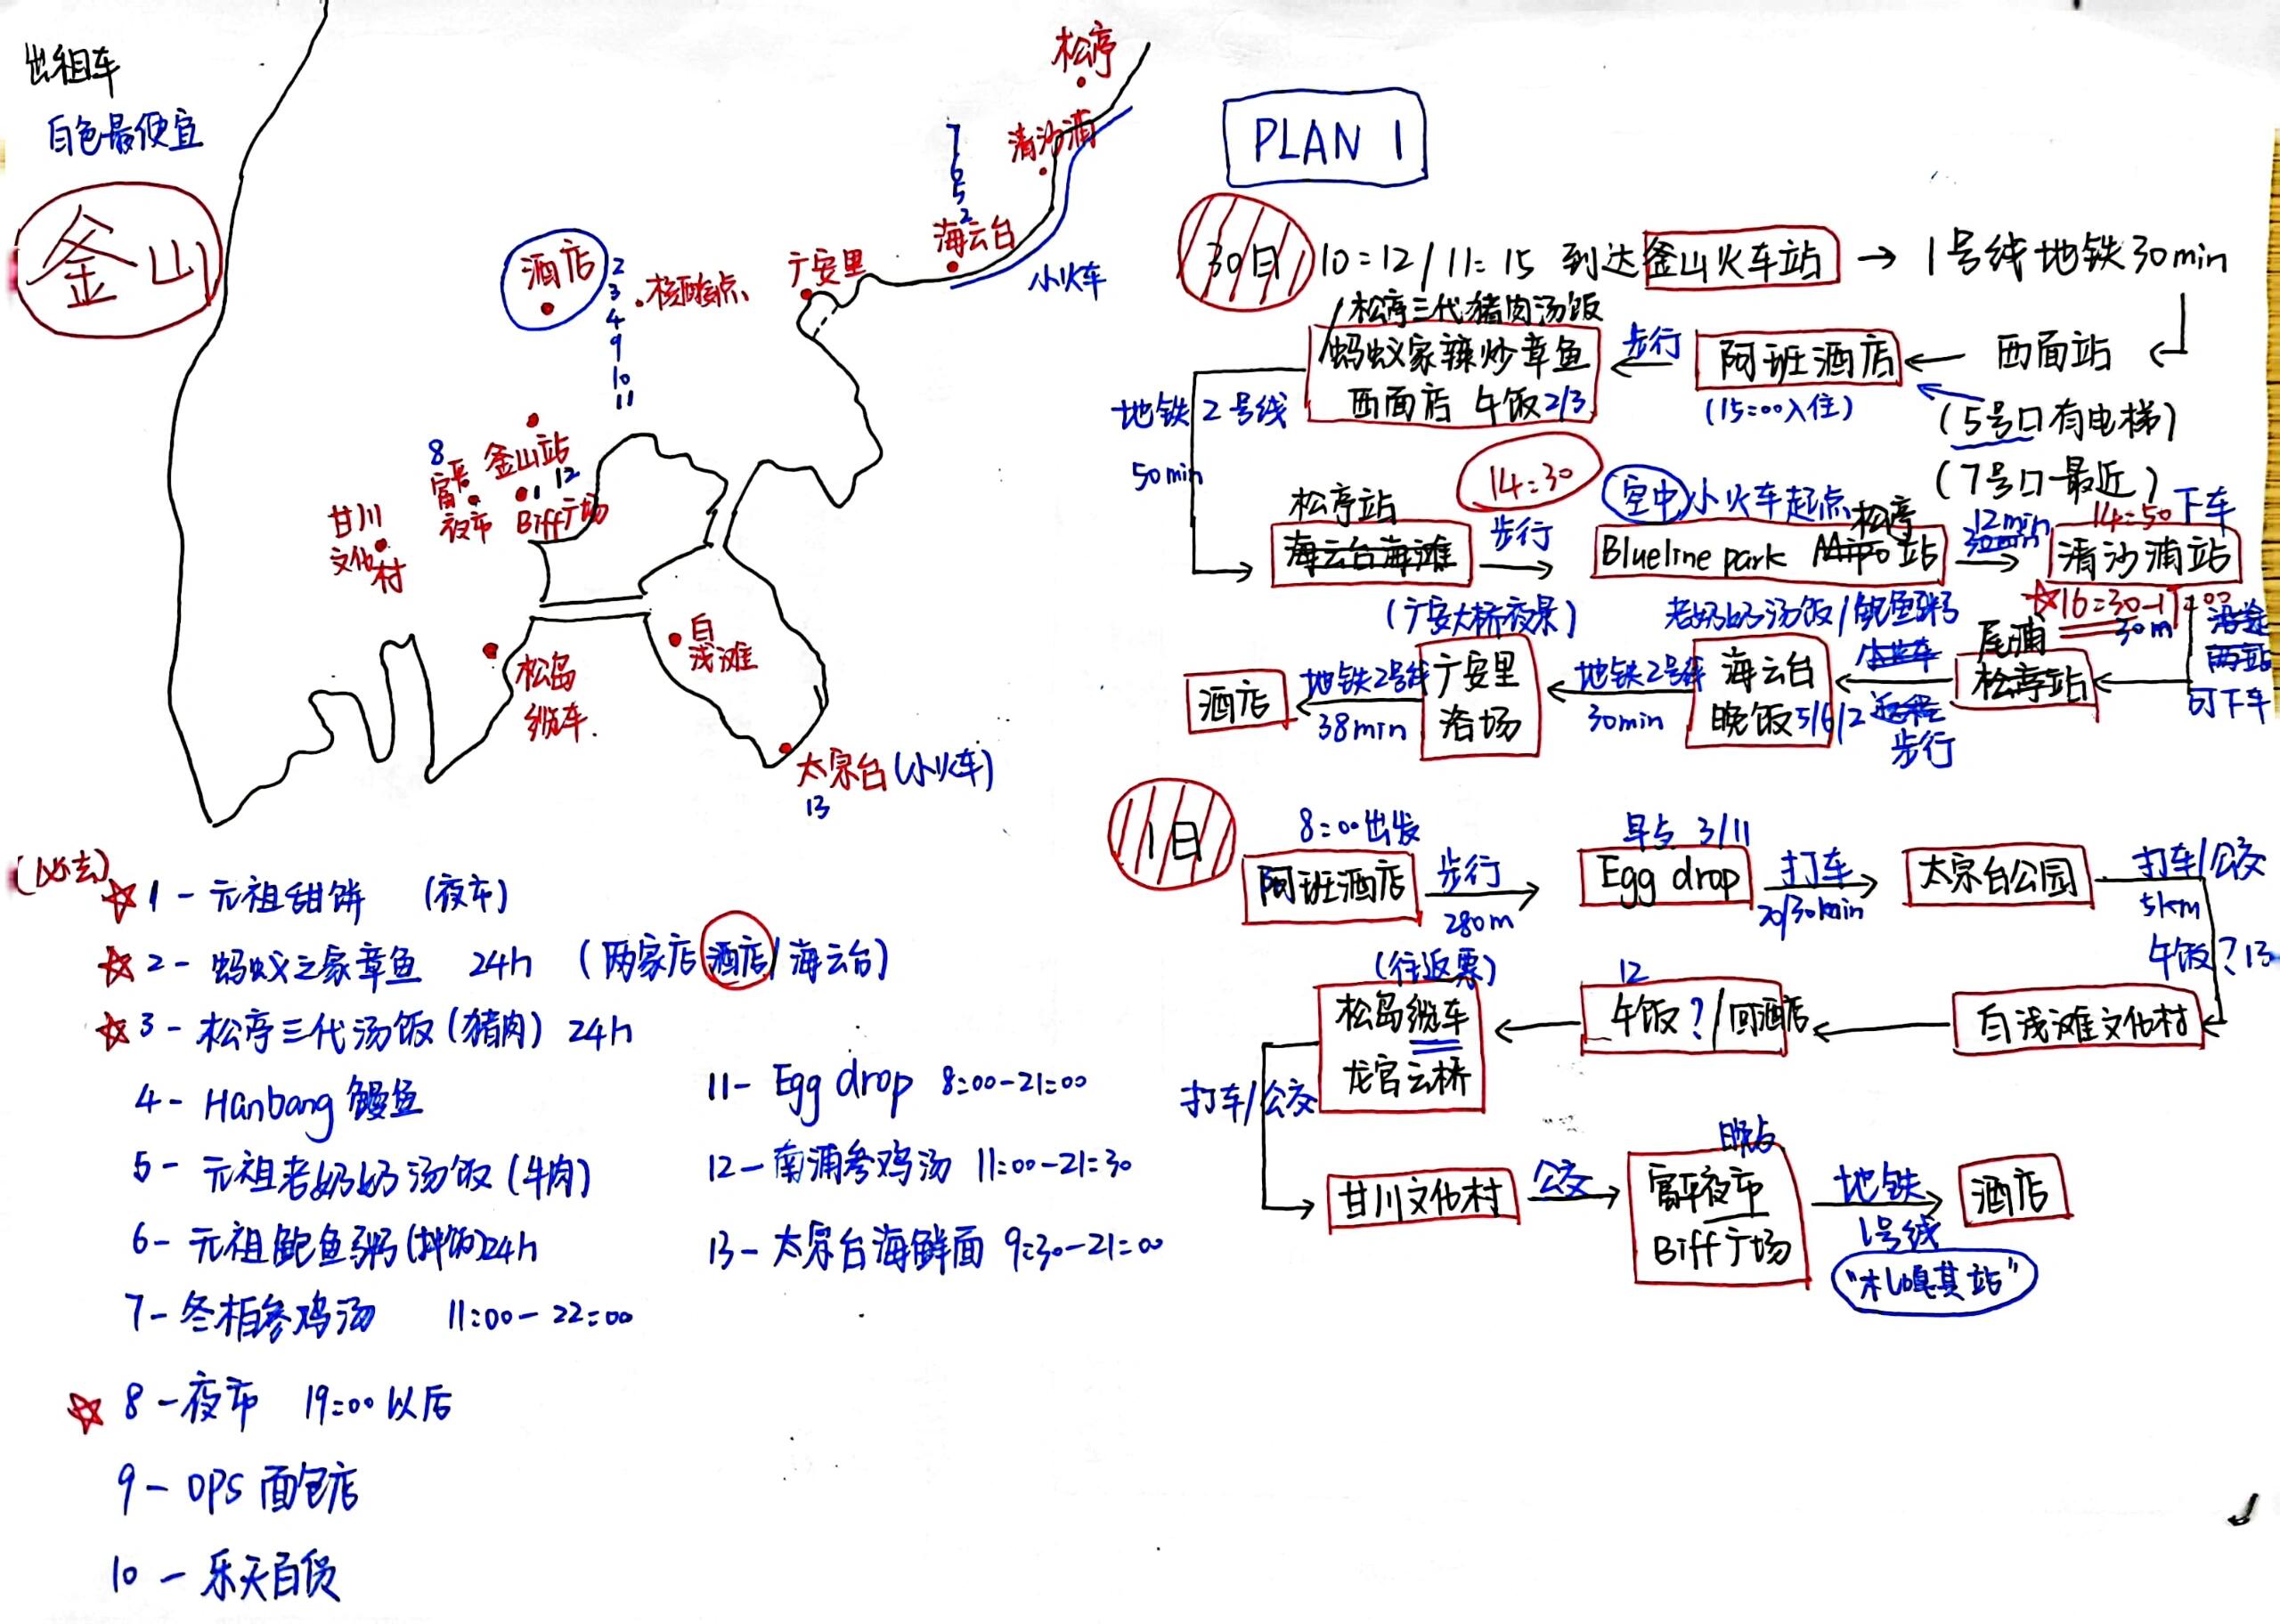 出租车
白色最便宜
釜山
松亭
清沙浦
7
6
5
2
海云台
小火车
广安里
酒店
2
3
4
9
10
11
核酸点
釜山站
8
富平
夜市
1
12
Biff广场
甘川
文化村
松岛
缆车
白
浅滩
太宗台(小火车)
13
(必去)
☆ 1 - 元祖甜饼 (夜市)
☆ 2 - 蚂蚁之家章鱼 24h (两家店 酒店/海云台)
☆ 3 - 松亭三代汤饭(猪肉) 24h
4 - Hanbang 鳗鱼
5 - 元祖老奶奶汤饭(牛肉)
6 - 元祖鲍鱼粥(拌饭)24h
7 - 冬柏参鸡汤 11:00 - 22:00
☆ 8 - 夜市 19:00以后
9 - OPS 面包店
10 - 乐天百货
11 - Egg drop 8:00-21:00
12 - 南浦参鸡汤 11:00-21:30
13 - 太宗台海鲜面 9:30-21:00
PLAN 1
30日
10:12/11:15 到达釜山火车站 → 1号线地铁30min
西面站
(5号口有电梯)
(7号口最近)
阿班酒店
(15:00入住)
步行
/松亭三代猪肉汤饭
蚂蚁家辣炒章鱼
西面店 午饭2/3
地铁2号线
50min
松亭站
海云台海滩
14:30
步行
空中小火车起点
松亭
Blueline park Mipo站
12min
30min
14:50下车
清沙浦站
☆16:30-17:00
沿途
两站
可下车
30m
尾浦
松亭站
小火车
返程
步行
老奶奶汤饭/鲍鱼粥
海云台
晚饭5/6/2
地铁2号线
30min
(广安大桥夜景)
广安里
浴场
地铁2号线
38min
酒店
1日
8:00出发
阿班酒店
步行
280m
早点 3/11
Egg drop
打车
20/30min
太宗台公园
打车/公交
5km
午饭?13
白浅滩文化村
12
午饭?/回酒店
(往返票)
松岛缆车
龙宫云桥
打车/公交
甘川文化村
公交
晚点
富平夜市
Biff广场
地铁
1号线
"札嘎其站"
酒店